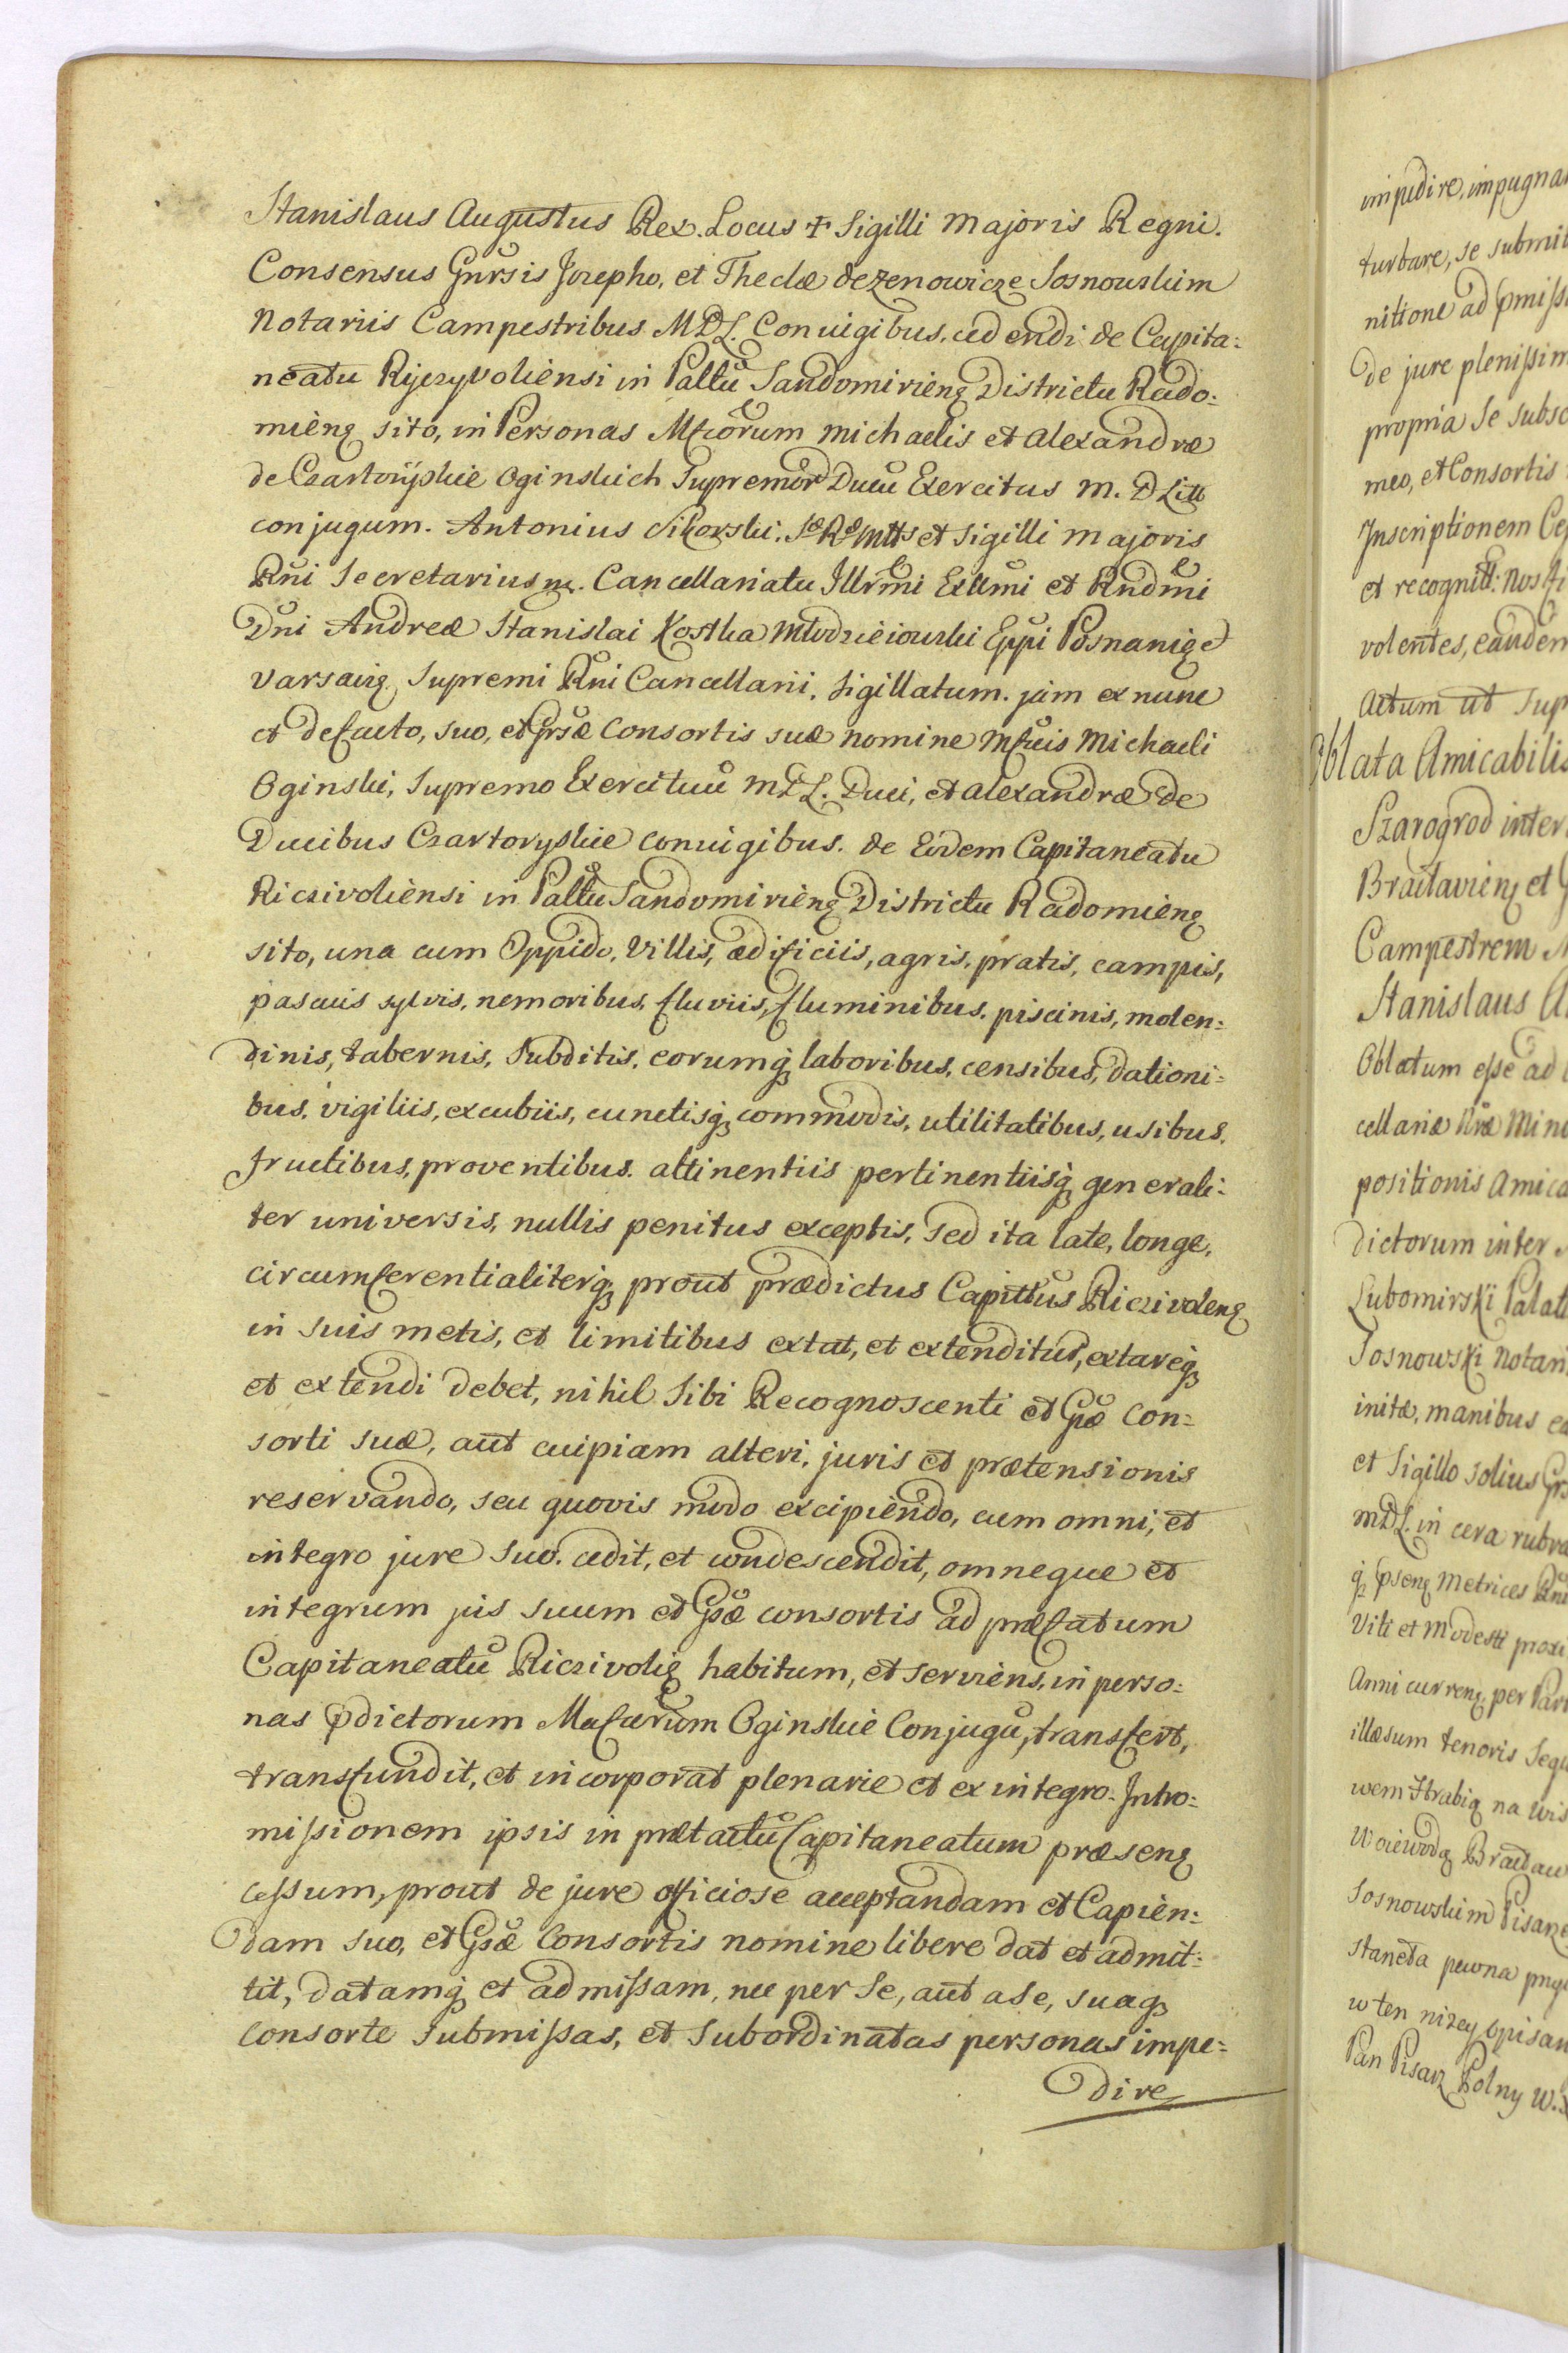 Stanislaus Augustus Rex. Locus ✝ Sigilli Majoris Regni.
Consensus Gnrsis Josepho, et Theclæ de Zenowicze Sosnowskim
Notariis Campestribus MDL. Conuigibus, cedendi de Capita:
neatu Rijczyvoliensi in Pallŭ Sandomirienȝ Districtu Rado:
mienȝ sito, in Personas Mficorum Michaelis et Alexandræ
de Czartoryskie Oginskich Supremor Ducŭ Exercitus M. D Litt
conjugum. Antonius Sikorski. Sæ Ræ Mttis et Sigilli Majoris
Rni Secretarius mp. Cancellariatu Illrmi Exllmi et Rndmi
Dni Andreæ Stanislai Kostka Młodzieiowski Eppi Posnaniȝ et
Varsaviȝ Supremi Rni Cancellarii. Sigillatum. jam ex nunc
et defacto, suo, et Grsæ Consortis suæ nomine Mficis Michaeli
Oginski, Supremo Exercituŭ MDL. Duci, et Alexandræ de
Ducibus Czartoryskie conuigibus. de Eodem Capitaneatu
Riczivoliensi in Pallŭ Sandomirienȝ Districtu Radomienȝ
sito, una cum Oppido, Villis, ædificiis, agris, pratis, campis,
pascuis sylvis, nemoribus, fluviis, fluminibus. piscinis, molen:
dinis, tabernis, Subditis, eorumqȝ laboribus, censibus, dationi:
bus, vigiliis, excubiis, cunctisqȝ commodis, utilitatibus, usibus.
fructibus, proventibus. attinentiis pertinentiisqȝ generali:
ter universis, nullis penitus exceptis, Sed ita late, longe,
circumferentialiterqȝ prout prædictus Capittus Riczivolenȝ
in suis metis, et limitibus extat, et extenditur, extareqȝ
et extendi debet, nihil Sibi Recognoscenti et Gsæ Con:
sorti suæ, aut cuipiam alteri, juris et prætensionis
reservando, seu quovis modo excipiendo, cum omni, et
integro jure suo. cedit, et condescendit, omneque et
integrum jus suum et Gsæ consortis ad præfatum
Capitaneatŭ Riczivoliȝ habitum, et serviens, in perso:
nas pdictorum Mficorum Oginskie Conjugŭ, transfert,
transfundit, et incorporat plenarie et ex integro. Intro:
missionem ipsis in prætactŭ Capitaneatum præsenȝ
cessum, prout de jure officiose acceptandam et Capien:
dam suo, et Gsæ Consortis nomine libere dat et admit:
tit, datamqȝ et admissam, nec per se, aut a se, suaqȝ
consorte submissas, et subordinatas personas impe:
dire
impedire, impugna
turbare, se submit
nitione ad pmiss
de jure plenissim
propria se subsc
meo, et Consortis
Inscriptionem Ce
et recognitt. Nos
volentes, eandem
Actum ut sup
Oblata Amicabilis
Szarogrod inter
Braclavienȝ et
Campestrem
Stanislaus A
Oblatum esse ad
cellariæ Nræ Mino
positionis Amica
dictorum inter
Lubomirski Palat
Sosnowski Notari
initæ, manibus
et Sigillo solius Grs
MDL. in cera rubra
qȝ psenȝ Metrices Rni
Viti et Modesti proxi
Anni currenȝ per Par
illæsum tenoris sequ
wem Hrabią na Wis
Woiewodą Bracław
Sosnowskim Pisarze
staneła pewna
w ten niżey opisan
Pan Pisarz Polny W.